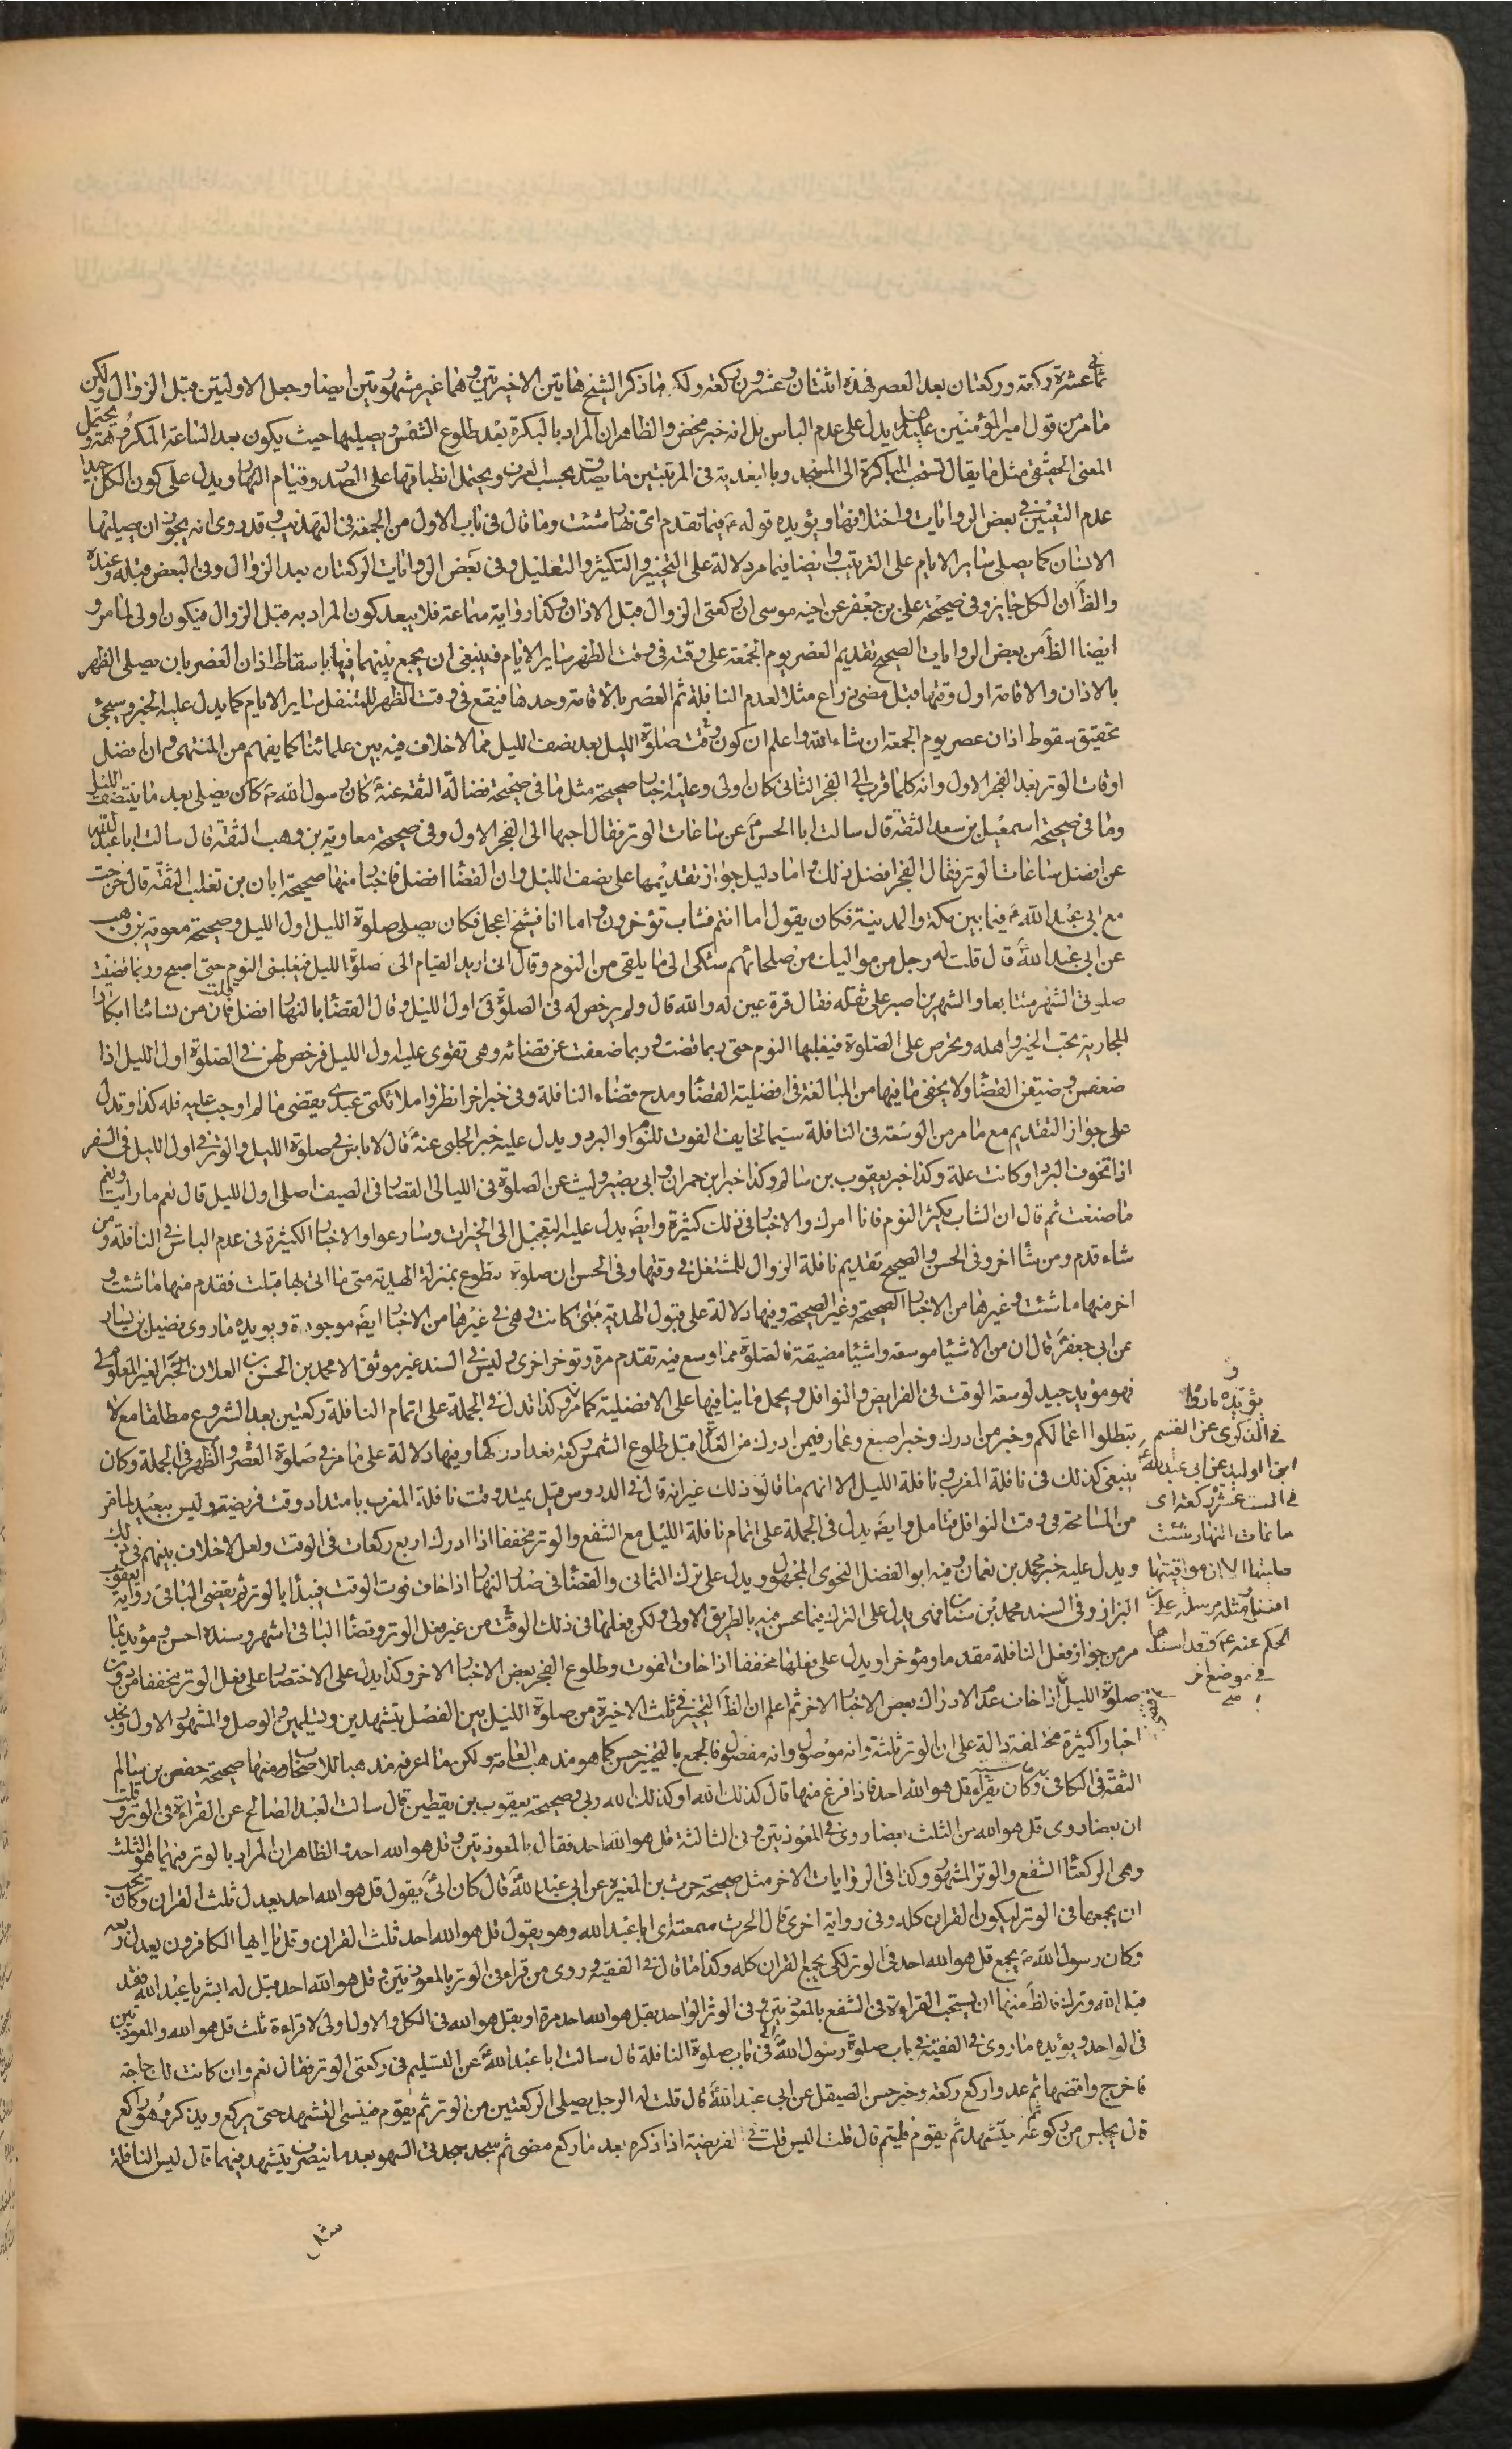 ثماني عشرة ركعة وركعتان بعد العصر فهذه اثنتان وعشرون ركعة ولكن ما ذكر الشيخ هاتين الاخيرتين وهما غير مشهورتين ايضا وجعل الاوليتين قبل الزوال ولكن
ما مر من قول امير المؤمنين يدل على عدم الباس بل انه خبر محض والظاهر ان المراد بالبكرة بعد طلوع الشمس ويصليها حيث يكون بعد الساعة المكروهة ويحتمل
المعنى الحقيقي مثل ما يقال تستحب المباكرة الى المسجد وبالبعدية في المرتبتين ما يصدق بحسب العرف ويحتمل انطباقها على الصدر وقيام النهار ويدل على كون الكل جيدا
عدم التعيين في بعض الروايات واختلافها ويؤيده قوله ع فيما تقدم اي نهار شئت وما قال في باب الاول من الجمعة في التهذيب وقد روى انه يجوز ان يصليها
الانسان كما يصلى ساير الايام على الترتيب وايضا فيما مر دلالة على التخيير والتكثير والتعليل وفي بعض الروايات الركعتان بعد الزوال وفي البعض قبله وعنده
والظ ان الكل جايز وفي صحيحة على بن جعفر عن اخيه موسى ان ركعتى الزوال قبل الاذان وكذا رواية سماعة فلا يبعد كون المراد به قبل الزوال فيكون اولى لما مر و
ايضا الظ من بعض الروايات الصحيح تقديم العصر يوم الجمعة على وقته في وقت الظهر ساير الايام فينبغى ان يجمع بينهما فيها باسقاط اذان العصر بان يصلى الظهر
بالاذان والاقامة اول وقتها قبل مضى ذراع مثلا لعدم النافلة ثم العصر بالاقامة وحدها فيقع في وقت الظهر للمتنفل ساير الايام كما يدل عليه الخبر وسيجئ
تحقيق سقوط اذان عصر يوم الجمعة ان شاء الله واعلم ان كون وقت صلوة الليل بعد نصف الليل مما لا خلاف فيه بين علمائنا كما يفهم من المنتهى وان افضل
اوقات الوتر بعد الفجر الاول وانه كلما قرب الى الفجر الثانى كان اولى وعليه اخبار صحيحة مثل ما في صحيحة فضالة الثقة عنه كان رسول الله ص كان يصلى بعد ما ينتصف الليل
وما في صحيحة اسمعيل بن سعد الثقة قال سالت ابا الحسن ع عن ساعات الوتر فقال احبها الى الفجر الاول وفي صحيحة معاوية بن وهب الثقة قال سالت ابا عبد الله
عن افضل ساعات الوتر فقال الفجر افضل ذلك واما دليل جواز تقديمها على نصف الليل وان القضا افضل فاخبار منها صحيحة ابان بن تغلب الثقة قال خرجت
مع ابى عبد الله ع فيما بين مكة والمدينة فكان يقول اما انتم فشباب تؤخرون واما انا فشيخ اعجل فكان يصلى صلوة الليل اول الليل وصحيحة معوية بن وهب
عن ابى عبد الله ع قال قلت له رجل من مواليك من صلحائهم شكى الى ما يلقى من النوم وقال انى اريد القيام الى صلوة الليل فيغلبنى النوم حتى اصبح وربما قضيت
صلوتى الشهر متتابعا والشهرين اصبر على ثقله فقال قرة عين له والله قال ولم يرخص له في الصلوة في اول الليل وقال القضا بالنهار افضل قلت فان من نسائنا ابكارا
الجارية تحب الخير واهله وتحرص على الصلوة فيغلبها النوم حتى ربما قضت وربما ضعفت عن قضائه وهى تقوى عليه اول الليل فرخص لهن في الصلوة اول الليل اذا
ضعفن وضيقن القضا ولا يخفى ما فيها من المبالغة في افضلية القضا ومدح قضاء النافلة وفي خبر اخر انظروا ملائكتى عبدى يقضى ما لم اوجب عليه فله كذا وتدل
على جواز التقديم مع ما مر من الوسعة في النافلة سيما لخايف الفوت للنوم او البرد ويدل عليه خبر الحلبى عنه ع قال لا باس في صلوة الليل والوتر في اول الليل في السفر
اذا تخوف البرد او كانت علة وكذا خبر يعقوب بن سالم وكذا خبر ابن حمران وابى بصير وليث عن الصلوة في الليالى القصار في الصيف اصلى اول الليل قال نعم ما رايت ونعم
ما صنعت ثم قال ان الشاب يكثر النوم فانا امرك والاخبار في ذلك كثيرة وايض يدل عليه التعجيل الى الخيرات وسارعوا والاخبار الكثيرة في عدم الباس في النافلة ومن
شاء قدم ومن شا اخر وفي الحسن والصحيح تقديم نافلة الزوال للمشتغل في وقتها وفي الحسن ان صلوة تطوع بمنزلة الهدية متى ما اتى بها قبلت فقدم منها ما شئت و
اخر منها ما شئت وغيرها من الاخبار الصحيحة وغير الصحيحة وفيها دلالة على قبول الهدية متى كانت وهى في غيرها من الاخبار ايض موجودة ويؤيده ما روى فضيل بن يسار
عن ابى جعفر ع قال ان من الاشيا موسعة واشيا مضيقة فالصلوة مما وسع فيه تقدم مرة وتوخر اخرى وليس في السند غير موثق الا محمد بن الحسن بن العلان الغير المعلوم
فهو مؤيد جيد لوسعة الوقت في الفرايض والنوافل ويحمل ما ينافيها على الافضلية كما مر وكذا تدل في الجملة على اتمام النافلة ركعتين بعد الشروع مطلقا مع لا
تبطلوا اعمالكم وخبر من ادرك وخبر اصبغ وعمار فيمن ادرك من الغداة قبل طلوع الشمس ركعة فقد ادركها وفيها دلالة على ما مر في صلوة العصر والظهر في الجملة وكان
ينبغى كذلك في نافلة المغرب ونافلة الليل الا انهم ما قالوا ذلك غير انه قال في الدروس قيل يمتد وقت نافلة المغرب بامتداد وقت فريضته وليس ببعيد لما مر
من المسامحة في وقت النوافل فتامل وايض يدل في الجملة على اتمام نافلة الليل مع الشفع والوتر مخففا اذا ادرك اربع ركعات في الوقت ولعل لا خلاف بينهم في ذلك
ويدل عليه خبر محمد بن نعمان وفيه ابو الفضل النحوى المجهول ويدل على ترك الثمانى والقضا في صدر النهار اذا خاف فوت الوقت فيبدأ بالوتر ثم يقضى الباقى رواية يعقوب
البزاز وفي السند محمد بن سنان فهى يدل على الترك فيما يحسن فيه بالطريق الاولى ولكن فعلها في ذلك الوقت من غير فعل الوتر وقضا الباقى اشهر وسنده احسن ومؤيد بما
مر من جواز فعل النافلة مقدما ومؤخرا ويدل على فعلها مخففا اذا خاف الفوت وطلوع الفجر بعض الاخبار الاخر وكذا يدل على الاختصار على فعل الوتر مخففا من دون
صلوة الليل اذا خاف عدم الادراك بعض الاخبار الاخر ثم اعلم ان الظ التخيير في ثلث الاخيرة من صلوة الليل بين الفصل بتشهدين وتسليمين والوصل والمشهور الاول وتجد
اخبارا كثيرة مختلفة دالة على ان الوتر ثلثة وانه موصول وانه مفصول فالجمع بالتخيير حسن كما هو مذهب العامة ولكن ما اعرفه مذهبا للاصحاب ومنها صحيحة حفص بن سالم
الثقة في الكافى وكان يقرأ قل هو الله احد فاذا فرغ منها قال كذلك الله او كذلك الله ربى وصحيحة يعقوب بن يقطين قال سالت العبد الصالح عن القراءة في الوتر وقلت
ان بعضا روى قل هو الله من الثلث وبعضا روى في المعوذتين وفي الثالثة قل هو الله احد فقال بالمعوذتين وقل هو الله احد والظاهر ان المراد بالوتر فيهما هو الثلث
وهى الركعتا الشفع والوتر المشهور وكذا في الروايات الاخر مثل صحيحة حرث بن المغيرة عن ابى عبد الله ع قال كان ابى ع يقول قل هو الله احد يعدل ثلث القران وكان يحب
ان يجمعها في الوتر ليكون القران كله وفي رواية اخرى قال الحرث سمعته اى ابا عبد الله وهو يقول قل هو الله احد ثلث القران وقل يا ايها الكافرون يعدل ربعه
وكان رسول الله ص يجمع قل هو الله احد في الوتر لكى يجمع القران كله وكذا ما قال في الفقيه وروى من قرا في الوتر بالمعوذتين وقل هو الله احد قيل له ابشر يا عبد الله فقد
قبل الله وترك فالظ منهما ان يستحب القراءة في الشفع بالمعوذتين وفي الوتر الواحد بقل هو الله احد مرة او بقل هو الله في الكل والاول اولى لا قراءة ثلث قل هو الله والمعوذتين
في الواحد ويؤيده ما روى في الفقيه في باب صلوة رسول الله ص في باب صلوة النافلة قال سالت ابا عبد الله ع عن التسليم في ركعتى الوتر فقال نعم وان كانت لك حاجة
فاخرج واقضها ثم عد واركع ركعة وخبر حسن الصيقل عن ابى عبد الله ع قال قلت له الرجل يصلى الركعتين من الوتر ثم يقوم فينسى التشهد حتى يركع ويذكر وهو راكع
قال يجلس من ركوعه فيتشهد ثم يقوم فليتم قال قلت اليس قلت في الفريضة اذا ذكره بعد ما ركع مضى ثم سجد سجدتى السهو بعد ما ينصرف يتشهد فيهما قال ليس النافلة
مثل
و
يؤيده ما روى
في الذكرى عن القسم
ابن الوليد عن ابى عبد الله ع
في الست عشر ركعة اى
ساعات النهار شئت
صليتها الا ان مواقيتها
افضل ومثله مرسلة على بن
الحكم عنه ع وقد اسندها
في موضع اخر